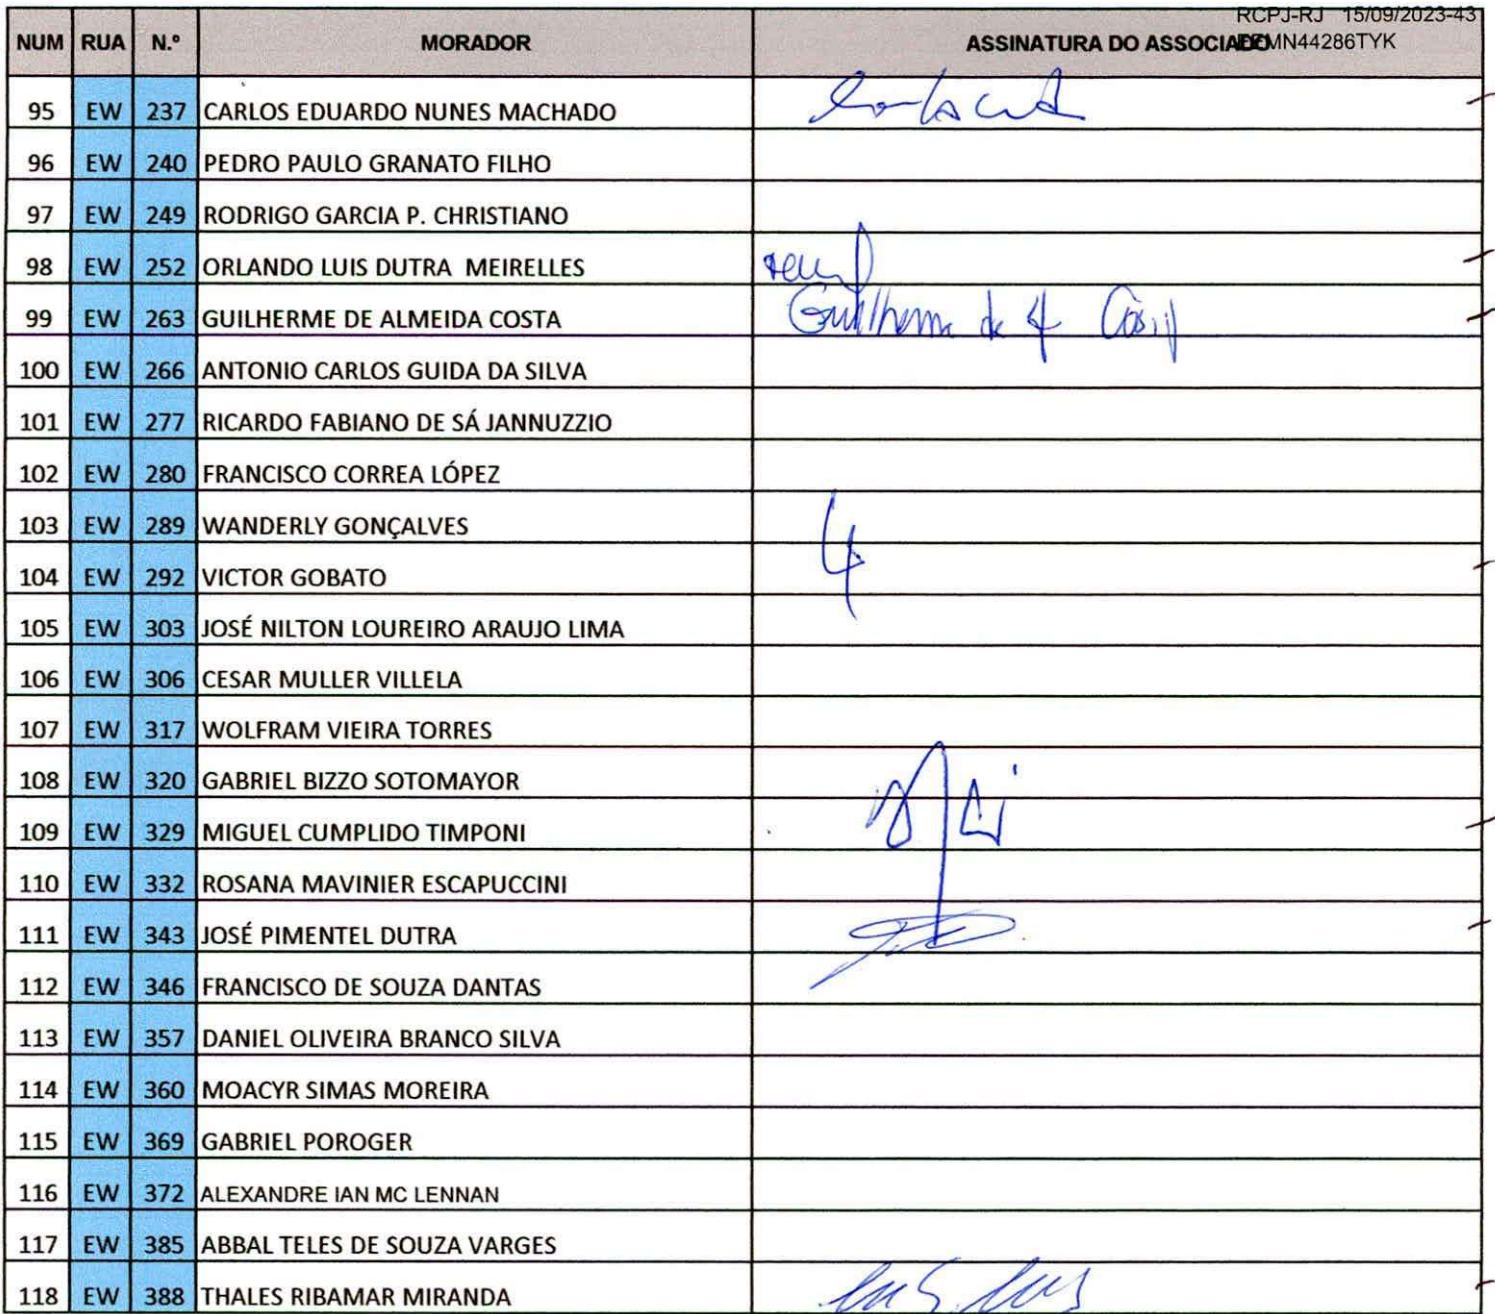 RCPJ-RJ 15/09/2023-43
NUM RUA N.º MORADOR ASSINATURA DO ASSOCIADO MN44286TYK
95 EW 237 CARLOS EDUARDO NUNES MACHADO
96 EW 240 PEDRO PAULO GRANATO FILHO
97 EW 249 RODRIGO GARCIA P. CHRISTIANO
98 EW 252 ORLANDO LUIS DUTRA MEIRELLES
99 EW 263 GUILHERME DE ALMEIDA COSTA Guilherme de A Costa
100 EW 266 ANTONIO CARLOS GUIDA DA SILVA
101 EW 277 RICARDO FABIANO DE SÁ JANNUZZIO
102 EW 280 FRANCISCO CORREA LÓPEZ
103 EW 289 WANDERLY GONÇALVES
104 EW 292 VICTOR GOBATO
105 EW 303 JOSÉ NILTON LOUREIRO ARAUJO LIMA
106 EW 306 CESAR MULLER VILLELA
107 EW 317 WOLFRAM VIEIRA TORRES
108 EW 320 GABRIEL BIZZO SOTOMAYOR
109 EW 329 MIGUEL CUMPLIDO TIMPONI
110 EW 332 ROSANA MAVINIER ESCAPUCCINI
111 EW 343 JOSÉ PIMENTEL DUTRA
112 EW 346 FRANCISCO DE SOUZA DANTAS
113 EW 357 DANIEL OLIVEIRA BRANCO SILVA
114 EW 360 MOACYR SIMAS MOREIRA
115 EW 369 GABRIEL POROGER
116 EW 372 ALEXANDRE IAN MC LENNAN
117 EW 385 ABBAL TELES DE SOUZA VARGES
118 EW 388 THALES RIBAMAR MIRANDA